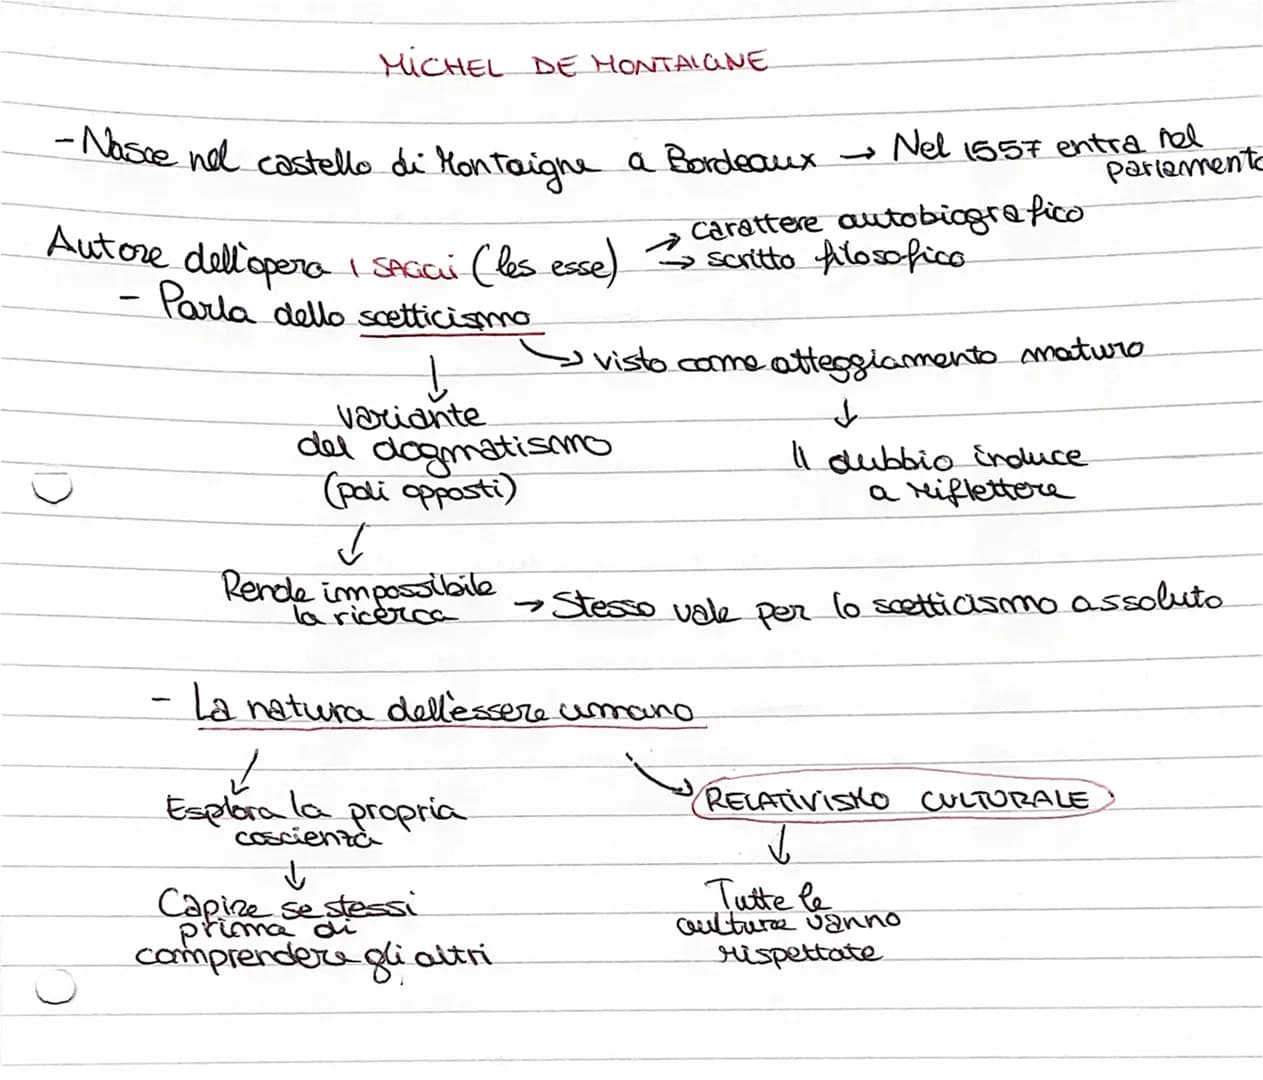 MICHEL DE MONTAIGNE
- Nasce nel castello di Montaigne a Bordeaux → Nel 1557 entra nel
parlamento
Autore dell'opera I SAGGI (les esse) → carattere autobiografico
→ scritto filosofico
- Parla dello scetticismo
→ visto come atteggiamento maturo
↓
variante
del dogmatismo
(poli opposti)
↓
Il dubbio induce
a riflettere
↓
Rende impossibile
la ricerca → Stesso vale per lo scetticismo assoluto
- La natura dell'essere umano
↓
Esplora la propria
coscienza
↓
Capire se stessi
prima di
comprendere gli altri
→ RELATIVISMO CULTURALE
↓
Tutte le
culture vanno
rispettate